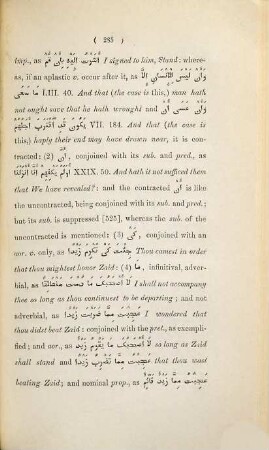 ( 285 )
imp., as أَشَرْتُ إِلَيْهِ بِأَنْ قُمْ I signed to him, Stand: where-
as, if an aplastic v. occur after it, as وَأَنْ لَيْسَ لِلْإِنْسَانِ إِلَّا
مَا سَعَى LIII. 40. And that (the case is this,) man hath
not ought save that he hath wrought and وَأَنْ عَسَى أَنْ
يَكُونَ قَدِ اقْتَرَبَ أَجَلُهُمْ VII. 184. And that (the case is
this,) haply their end may have drawn near, it is con-
tracted: (2) أَنَّ, conjoined with its sub. and pred., as
أَوَلَمْ يَكْفِهِمْ أَنَّا أَنْزَلْنَا XXIX. 50. And hath it not sufficed them
that We have revealed?: and the contracted أَنْ is like
the uncontracted, being conjoined with its sub. and pred.;
but its sub. is suppressed [525], whereas the sub. of the
uncontracted is mentioned: (3) كَيْ, conjoined with an
aor. v. only, as جِئْتُ لِكَيْ تُكْرِمَ زَيْدًا Thou comest in order
that thou mightest honor Zaid: (4) مَا, infinitival, adver-
bial, as لَا أَصْحَبُكَ مَا دُمْتَ مُنْطَلِقًا I shall not accompany
thee so long as thou continuest to be departing; and not
adverbial, as عَجِبْتُ مِمَّا ضَرَبْتَ زَيْدًا I wondered that
thou didst beat Zaid: conjoined with the pret., as exempli-
fied; and aor., as لَا أَصْحَبُكَ مَا يَقُومُ زَيْدٌ so long as Zaid
shall stand and عَجِبْتُ مِمَّا تَضْرِبُ زَيْدًا that thou wast
beating Zaid; and nominal prop., as عَجِبْتُ مِمَّا زَيْدٌ قَائِمٌ